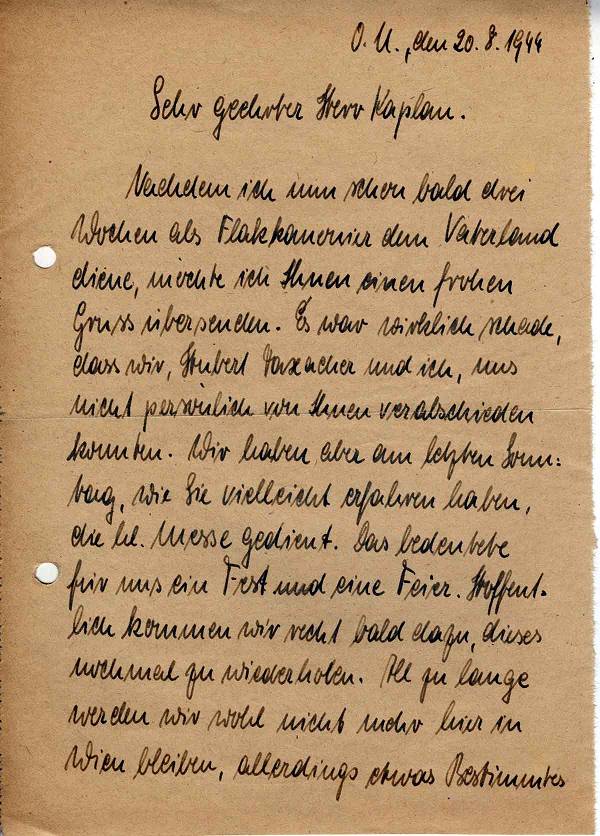 O.U., den 20.8.1944
Sehr geehrter Herr Kaplan.
Nachdem ich nun schon bald drei
Wochen als Flakkanonier dem Vaterland
diene, möchte ich Ihnen einen frohen
Gruss übersenden. Es war wirklich schade,
dass wir, Hubert Taxacher und ich, uns
nicht persönlich von Ihnen verabschieden
konnten. Wir haben aber am letzten Sonn:
tag, wie Sie vielleicht erfahren haben,
die hl. Messe gedient. Das bedeutete
für uns ein Fest und eine Feier. Hoffent-
lich kommen wir recht bald dazu, dieses
nochmal zu wiederholen. All zu lange
werden wir wohl nicht mehr hier in
Wien bleiben, allerdings etwas Bestimmtes